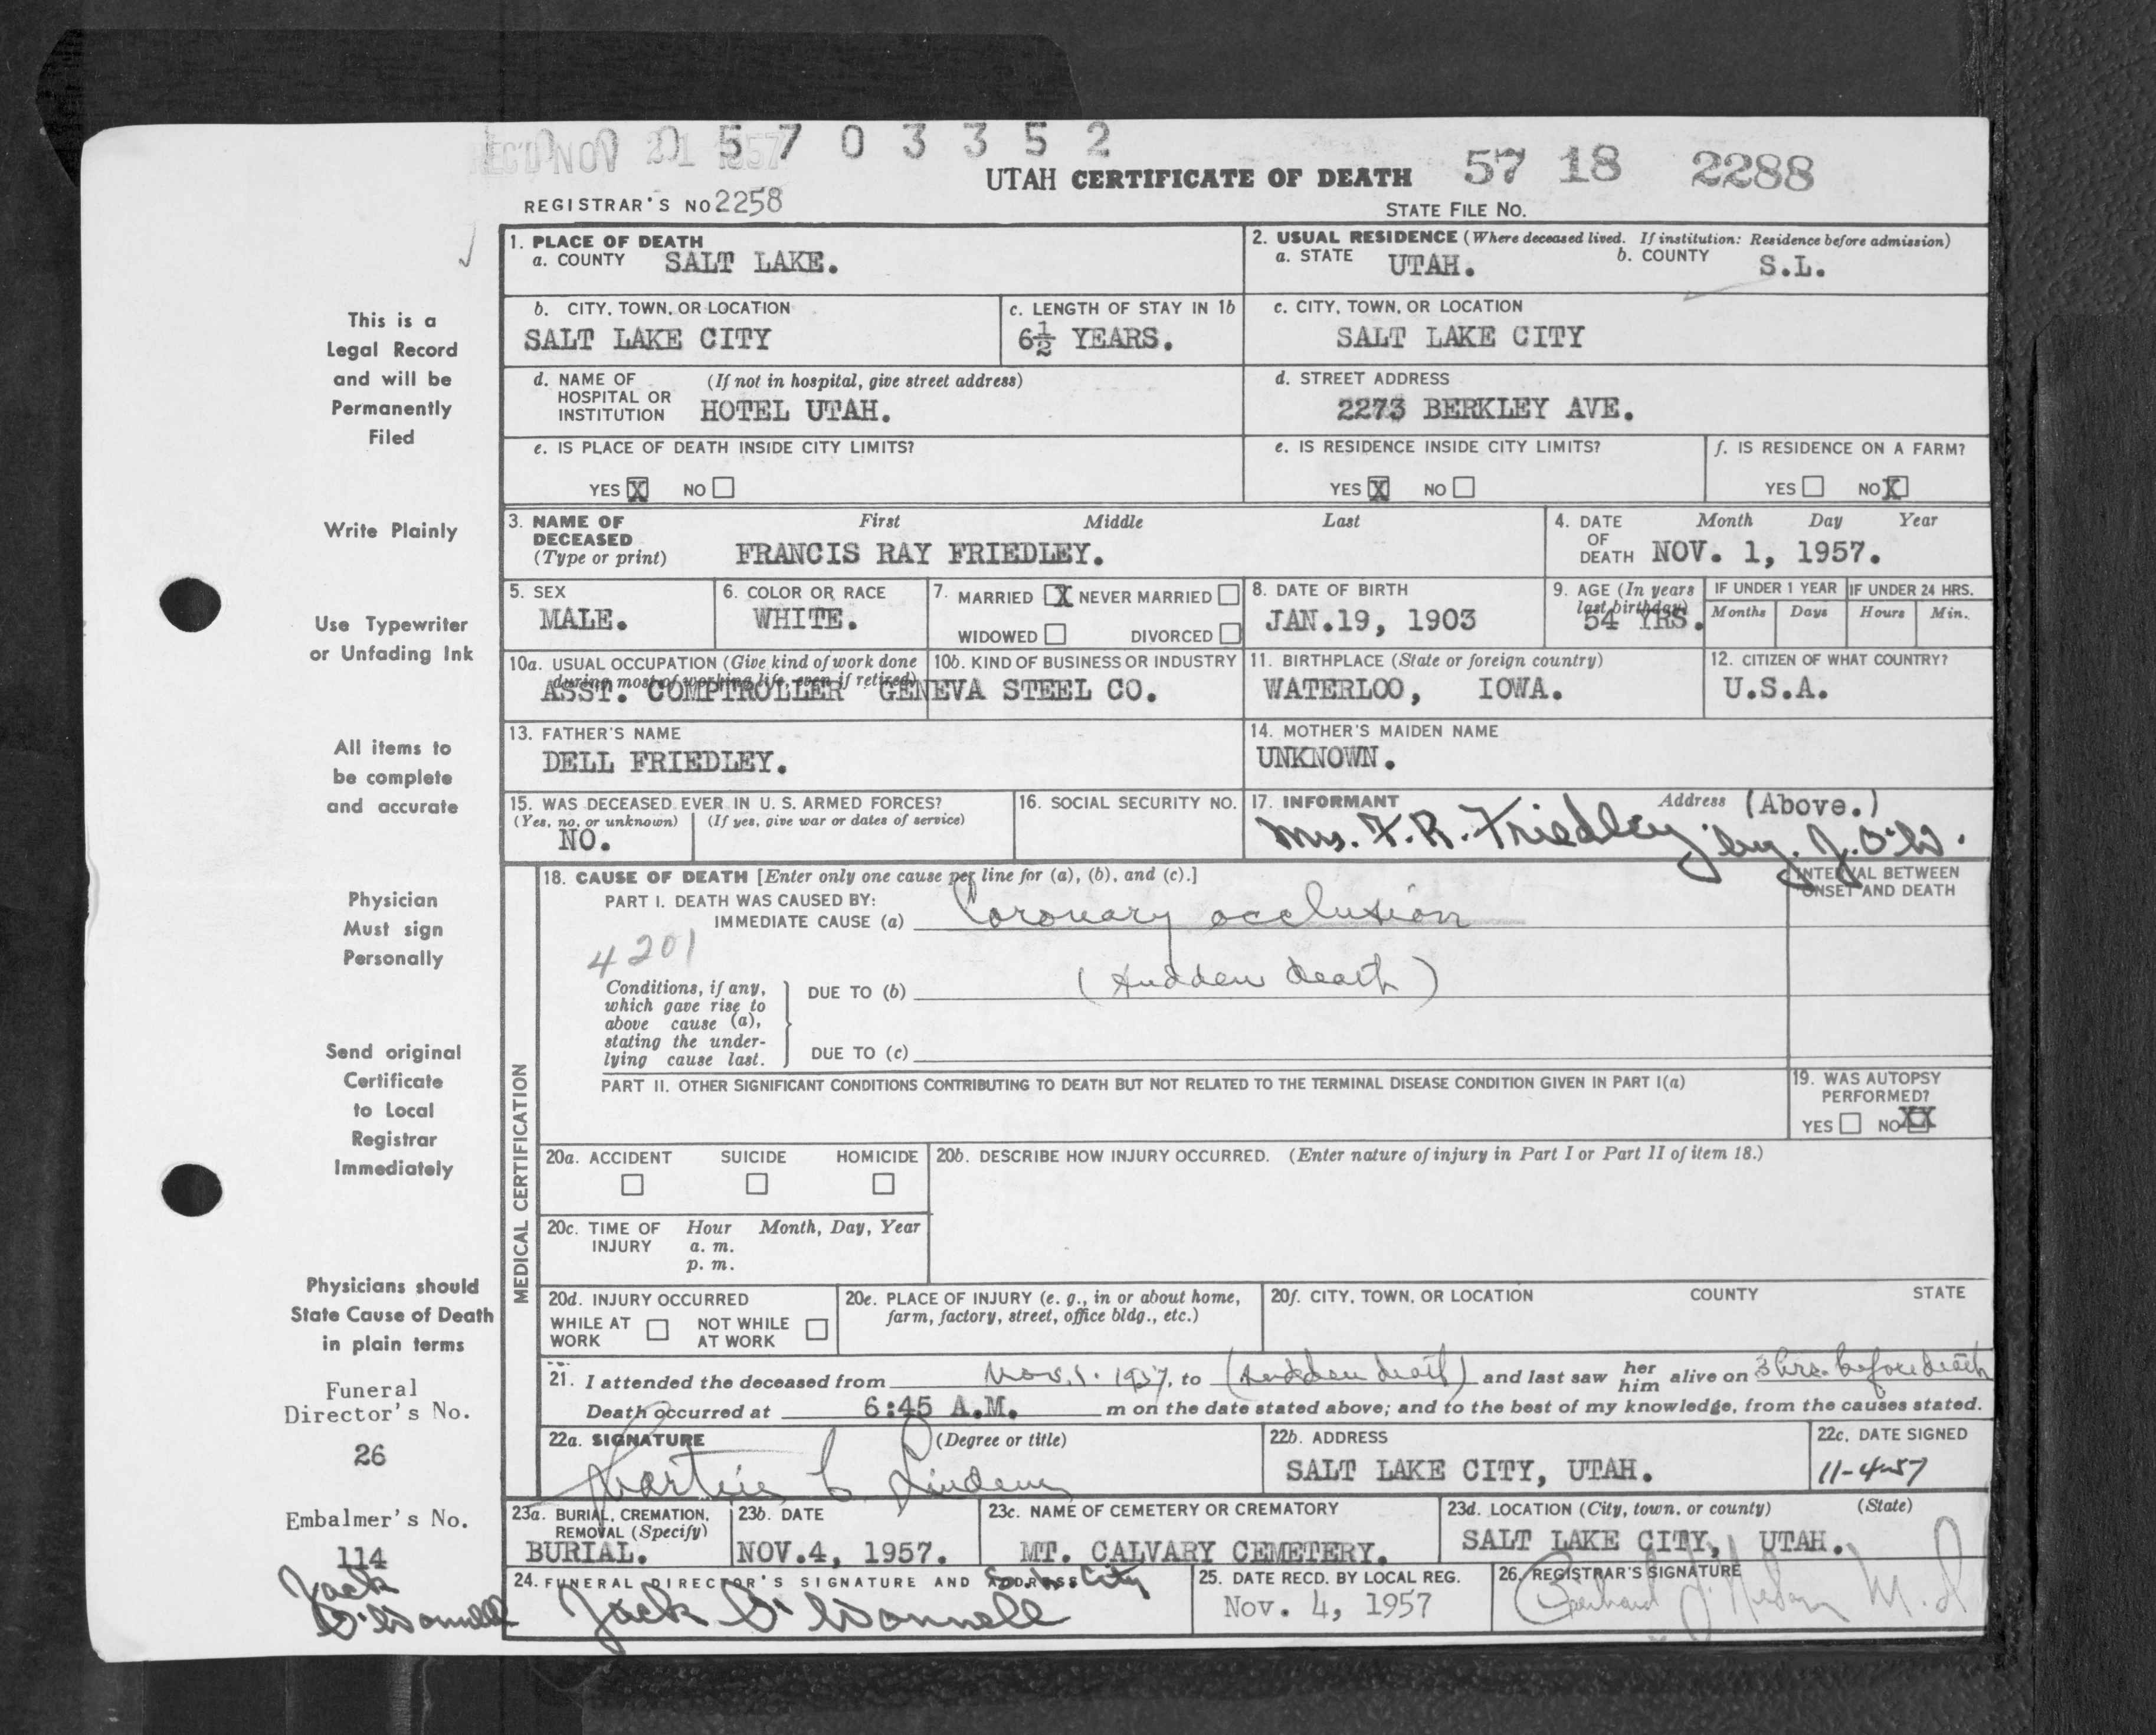 REC'D NOV 21 1957
0 0 5 7 0 3 3 5 2
UTAH CERTIFICATE OF DEATH 57 18 2288
REGISTRAR'S NO 2258
STATE FILE NO.
1. PLACE OF DEATH
a. COUNTY SALT LAKE.
2. USUAL RESIDENCE (Where deceased lived. If institution: Residence before admission)
a. STATE UTAH. b. COUNTY S.L.
b. CITY, TOWN, OR LOCATION
SALT LAKE CITY
c. LENGTH OF STAY IN 1b
6½ YEARS.
c. CITY, TOWN, OR LOCATION
SALT LAKE CITY
d. NAME OF HOSPITAL OR INSTITUTION (If not in hospital, give street address)
HOTEL UTAH.
d. STREET ADDRESS
2273 BERKLEY AVE.
e. IS PLACE OF DEATH INSIDE CITY LIMITS?
YES X NO
e. IS RESIDENCE INSIDE CITY LIMITS?
YES X NO
f. IS RESIDENCE ON A FARM?
YES NO X
3. NAME OF DECEASED (Type or print) First Middle Last
FRANCIS RAY FRIEDLEY.
4. DATE OF DEATH Month Day Year
NOV. 1, 1957.
5. SEX
MALE.
6. COLOR OR RACE
WHITE.
7. MARRIED X NEVER MARRIED
WIDOWED DIVORCED
8. DATE OF BIRTH
JAN.19, 1903
9. AGE (In years last birthday)
54 YRS.
IF UNDER 1 YEAR
Months Days
IF UNDER 24 HRS.
Hours Min.
10a. USUAL OCCUPATION (Give kind of work done during most of working life, even if retired)
ASST. COMPTROLLER
10b. KIND OF BUSINESS OR INDUSTRY
GENEVA STEEL CO.
11. BIRTHPLACE (State or foreign country)
WATERLOO, IOWA.
12. CITIZEN OF WHAT COUNTRY?
U.S.A.
13. FATHER'S NAME
DELL FRIEDLEY.
14. MOTHER'S MAIDEN NAME
UNKNOWN.
15. WAS DECEASED EVER IN U. S. ARMED FORCES?
(Yes, no, or unknown) (If yes, give war or dates of service)
NO.
16. SOCIAL SECURITY NO.
17. INFORMANT Address (Above.)
Mrs. F. R. Friedley. by. J. O'D.
18. CAUSE OF DEATH [Enter only one cause per line for (a), (b), and (c).]
INTERVAL BETWEEN ONSET AND DEATH
PART I. DEATH WAS CAUSED BY:
IMMEDIATE CAUSE (a) Coronary occlusion
4201
Conditions, if any, which gave rise to above cause (a), stating the underlying cause last.
DUE TO (b) (Sudden death)
DUE TO (c)
PART II. OTHER SIGNIFICANT CONDITIONS CONTRIBUTING TO DEATH BUT NOT RELATED TO THE TERMINAL DISEASE CONDITION GIVEN IN PART I(a)
19. WAS AUTOPSY PERFORMED?
YES NO XX
MEDICAL CERTIFICATION
20a. ACCIDENT SUICIDE HOMICIDE
20b. DESCRIBE HOW INJURY OCCURRED. (Enter nature of injury in Part I or Part II of item 18.)
20c. TIME OF INJURY Hour Month, Day, Year
a. m.
p. m.
20d. INJURY OCCURRED
WHILE AT WORK NOT WHILE AT WORK
20e. PLACE OF INJURY (e. g., in or about home, farm, factory, street, office bldg., etc.)
20f. CITY, TOWN, OR LOCATION COUNTY STATE
21. I attended the deceased from Nov. 1. 1957, to (Sudden death) and last saw her him alive on 3 hrs. before death
Death occurred at 6:45 A.M. m on the date stated above; and to the best of my knowledge, from the causes stated.
22a. SIGNATURE (Degree or title)
Martin C. Lindem
22b. ADDRESS
SALT LAKE CITY, UTAH.
22c. DATE SIGNED
11-4-57
23a. BURIAL, CREMATION, REMOVAL (Specify)
BURIAL.
23b. DATE
NOV.4, 1957.
23c. NAME OF CEMETERY OR CREMATORY
MT. CALVARY CEMETERY.
23d. LOCATION (City, town, or county) (State)
SALT LAKE CITY, UTAH.
24. FUNERAL DIRECTOR'S SIGNATURE AND ADDRESS City
Jack O'Donnell
25. DATE RECD. BY LOCAL REG.
Nov. 4, 1957
26. REGISTRAR'S SIGNATURE
M.D
This is a
Legal Record
and will be
Permanently
Filed
Write Plainly
Use Typewriter
or Unfading Ink
All items to
be complete
and accurate
Physician
Must sign
Personally
Send original
Certificate
to Local
Registrar
Immediately
Physicians should
State Cause of Death
in plain terms
Funeral
Director's No.
26
Embalmer's No.
114
Jack
O'Donnell